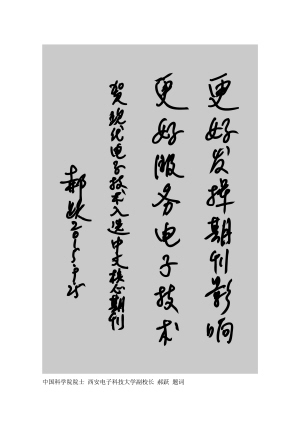 更好发挥期刊影响
更好服务电子技术
贺现代电子技术入选中文核心期刊
郝跃2015.9.25
中国科学院院士 西安电子科技大学副校长 郝跃 题词